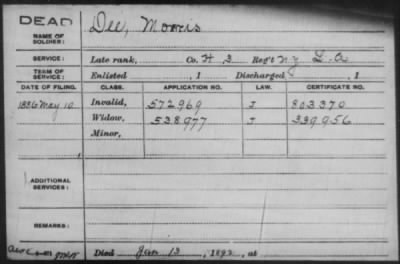 DEAD
NAME OF SOLDIER: Dee, Morris
SERVICE: Late rank, Co. H 3 Reg't N.Y. L.A
TERM OF SERVICE: Enlisted , 1 Discharged , 1
DATE OF FILING. CLASS. APPLICATION NO. LAW. CERTIFICATE NO.
1886 May 10 Invalid, 572969 J 803370
Widow, 538977 J 339956
Minor,
ADDITIONAL SERVICES:
REMARKS:
Died Jan 13, 1892, at